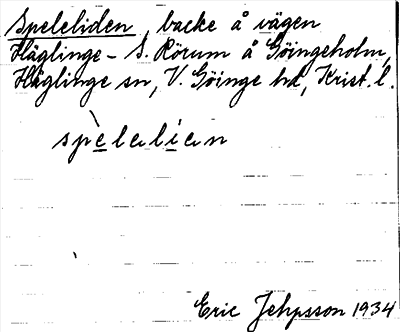 Speleliden, backe å vägen
Häglinge - S. Rörum å Göingeholm,
Häglinge sn, V. Göinge hd, Krist. l.
spèlelien
Eric Jehpsson 1934